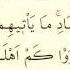 بَادِ ۚ مَا يَأْتِيهِم
وْا كَمْ أَهْلَ